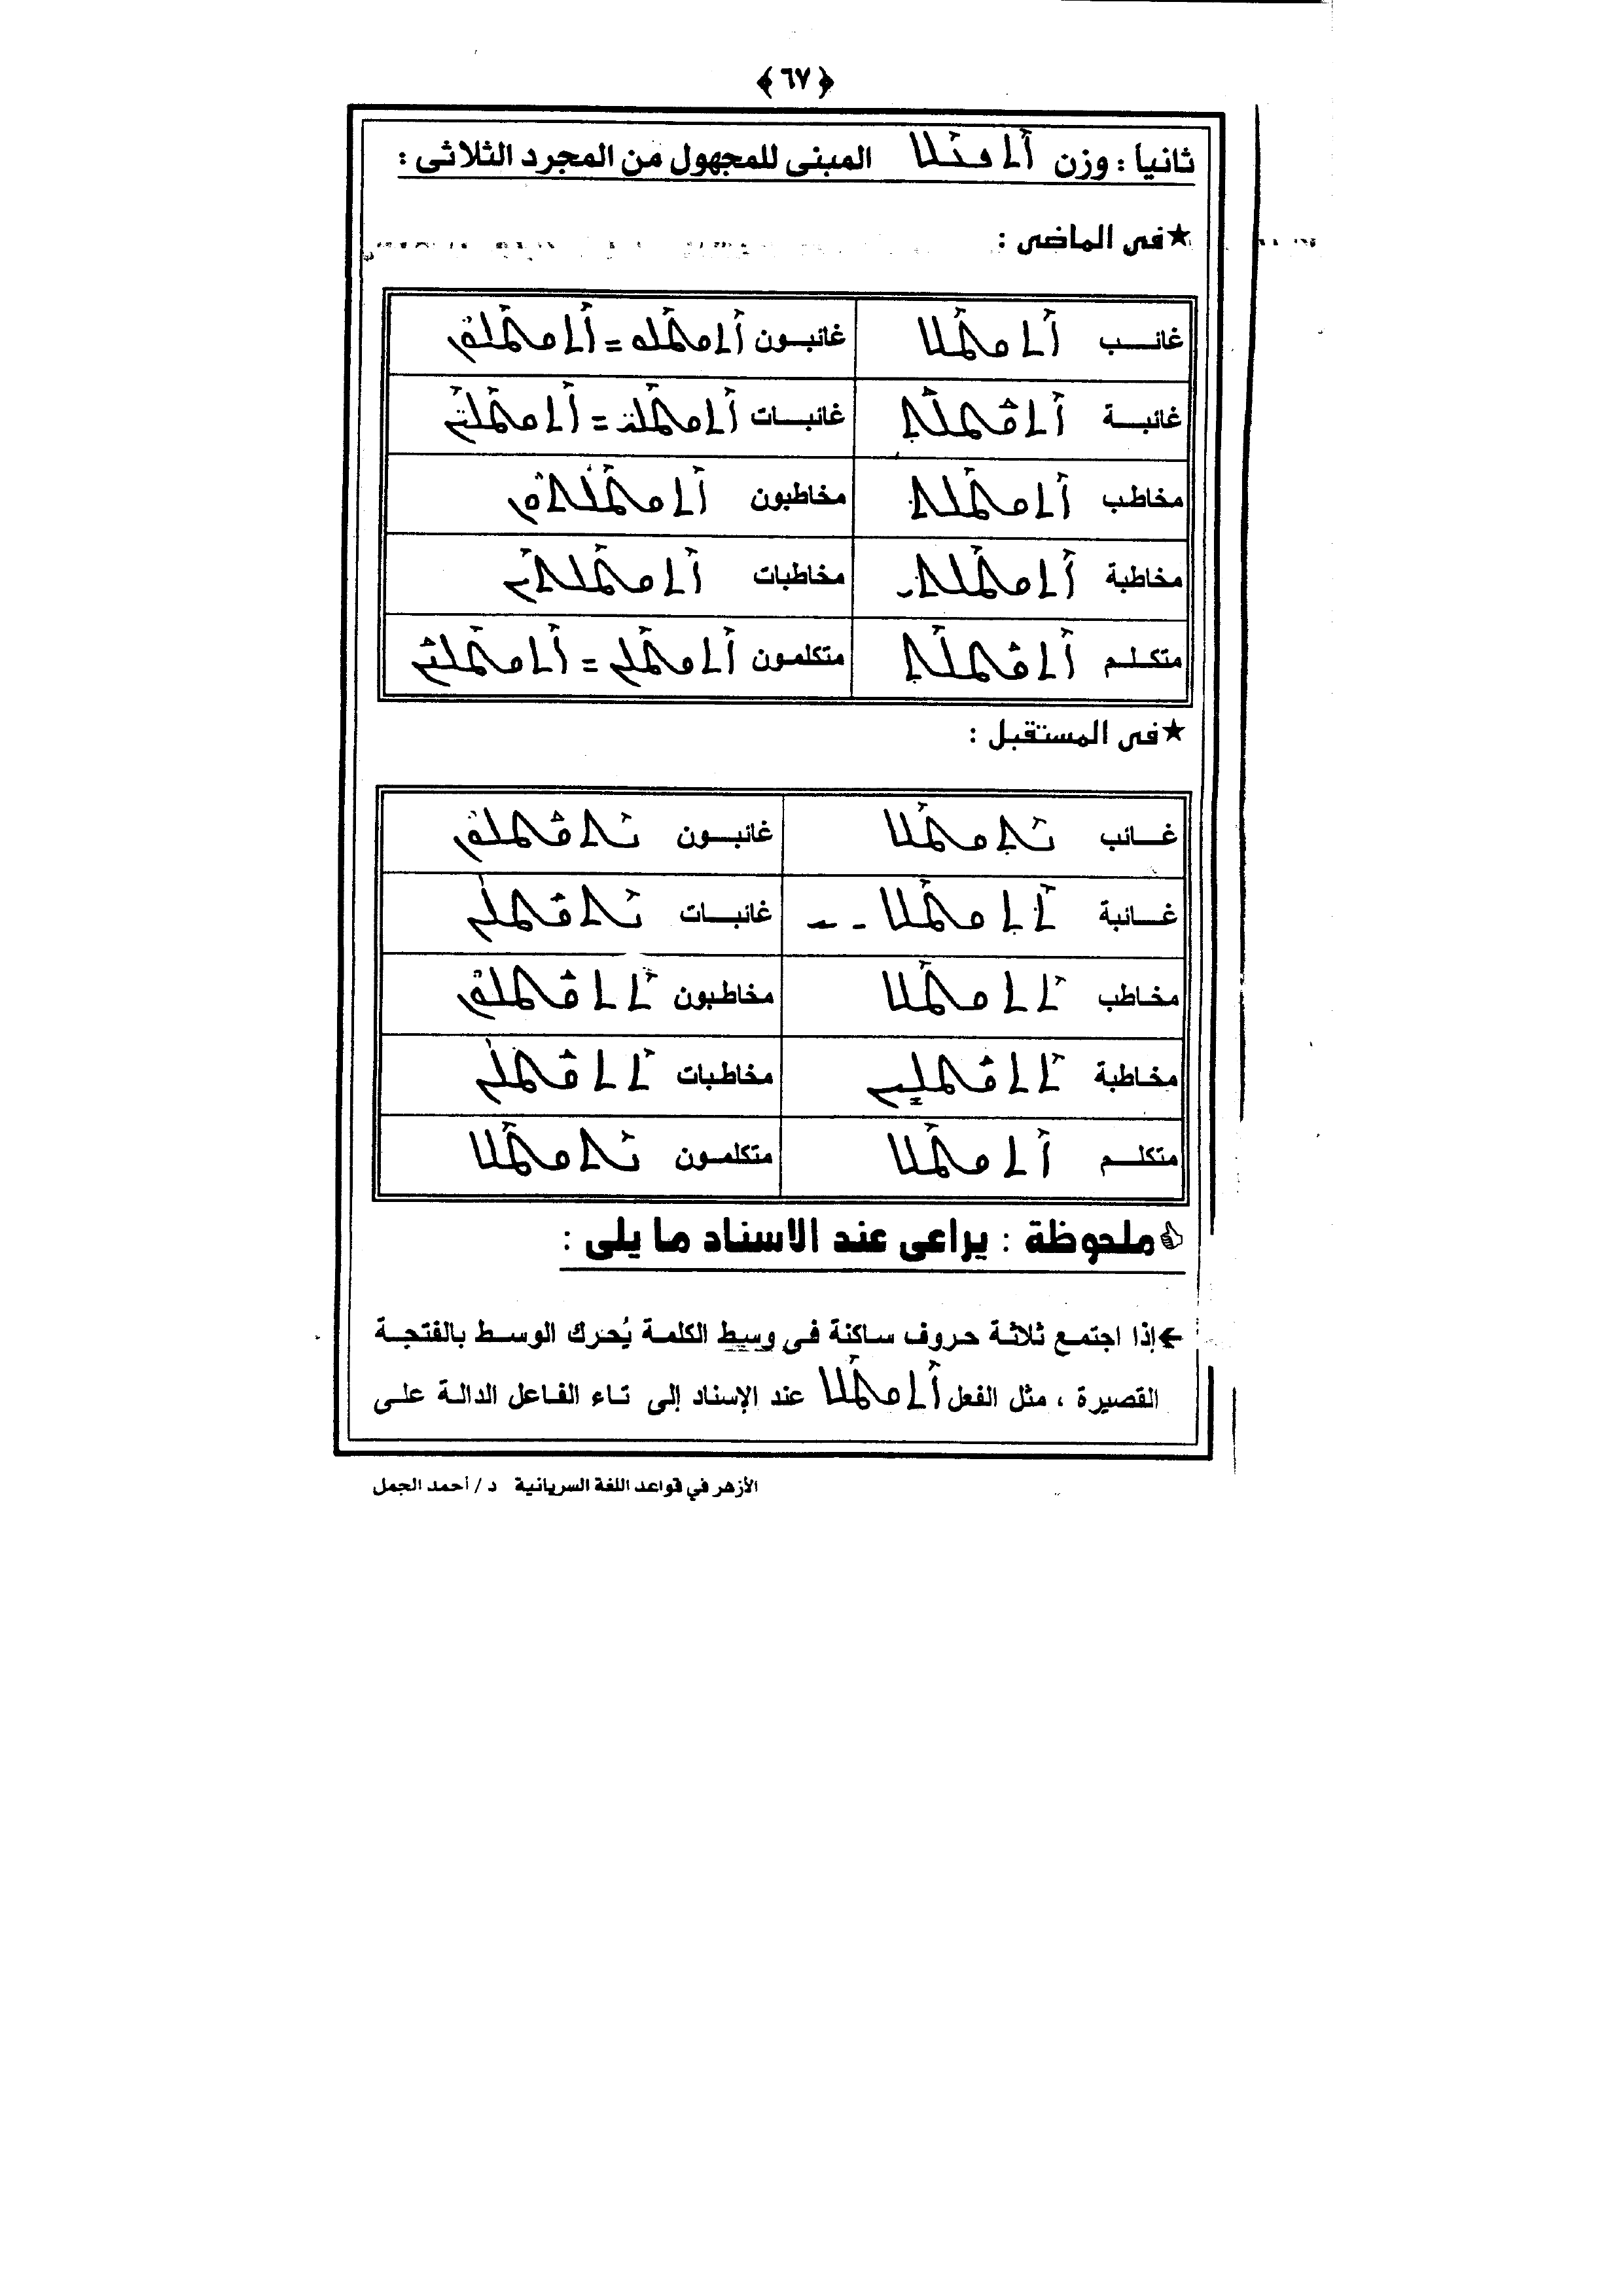 ﴿٦٧﴾
ثانياً : وزن ܐܬܦܥܠ المبنى للمجهول من المجرد الثلاثى :
★فى الماضى :
غائب ܐܬܩܛܠ غائبون ܐܬܩܛܠܘ = ܐܬܩܛܠܘܢ
غائبة ܐܬܩܛܠܬ غائبات ܐܬܩܛܠܝ = ܐܬܩܛܠܝܢ
مخاطب ܐܬܩܛܠܬ مخاطبون ܐܬܩܛܠܬܘܢ
مخاطبة ܐܬܩܛܠܬܝ مخاطبات ܐܬܩܛܠܬܝܢ
متكلم ܐܬܩܛܠܬ متكلمون ܐܬܩܛܠܢ = ܐܬܩܛܠܢܢ
★فى المستقبل :
غائب ܢܬܩܛܠ غائبون ܢܬܩܛܠܘܢ
غائبة ܬܬܩܛܠ - - غائبات ܢܬܩܛܠܢ
مخاطب ܬܬܩܛܠ مخاطبون ܬܬܩܛܠܘܢ
مخاطبة ܬܬܩܛܠܝܢ مخاطبات ܬܬܩܛܠܢ
متكلم ܐܬܩܛܠ متكلمون ܢܬܩܛܠ
ملحوظة : يراعى عند الاسناد ما يلى :
←إذا اجتمع ثلاثة حروف ساكنة فى وسط الكلمة يُحرك الوسط بالفتحة
القصيرة ، مثل الفعل ܐܬܩܛܠ عند الإسناد إلى تاء الفاعل الدالة على
الأزهر في قواعد اللغة السريانية د / أحمد الجمل